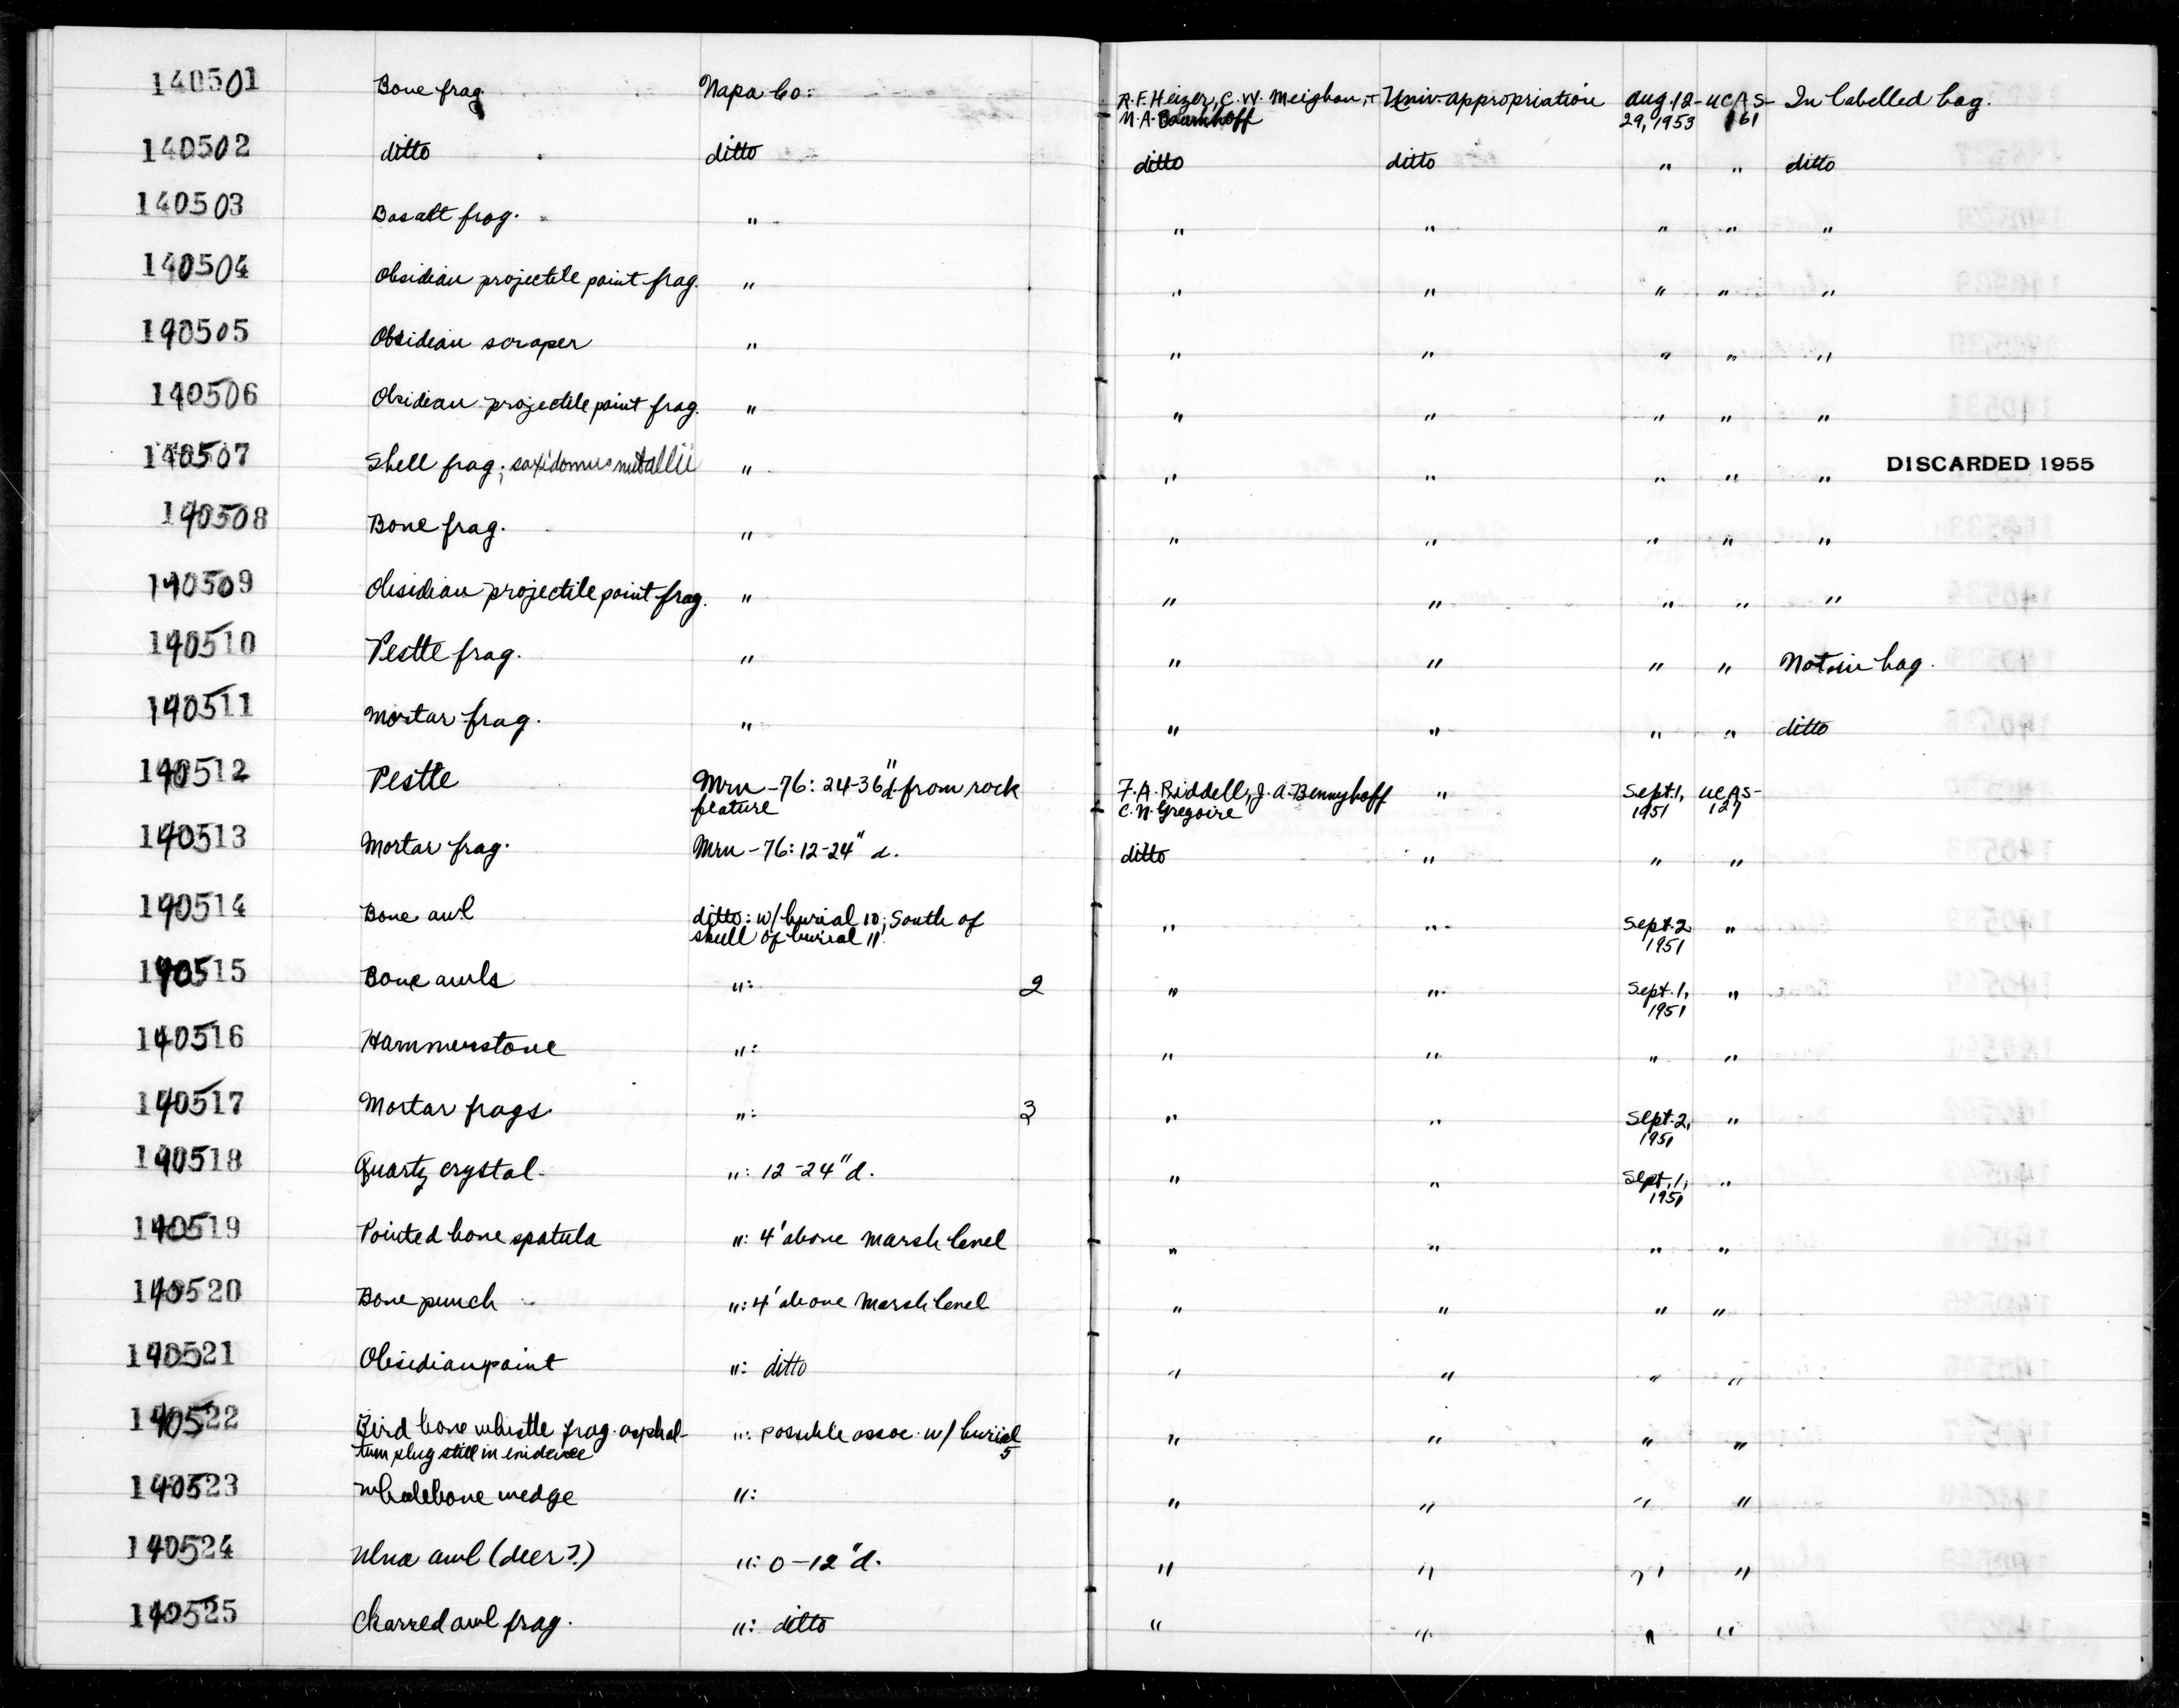 140501 Bone frag. Napa Co. R.F. Heizer, C.W. Meighan, + Univ. appropriation Aug. 12- UCAS- In labelled bag.
M.A. Baumhoff 29, 1953 161
140502 ditto ditto ditto ditto " " ditto
140503 Basalt frag. " " " " " "
140504 Obsidian projectile point frag. " " " " " "
140505 Obsidian scraper " " " " " "
140506 Obsidian projectile point frag. " " " " " "
140507 Shell frag.; saxidomus nuttallii " " " " " " DISCARDED 1955
140508 Bone frag. " " " " " "
140509 Obsidian projectile point frag. " " " " " "
140510 Pestle frag. " " " " " Not in bag.
140511 Mortar frag. " " " " " ditto
140512 Pestle Mrn-76: 24-36" d. from rock F.A. Riddell, J.A. Bennyhoff " Sept. 1, UCAS-
feature C.N. Gregoire 1951 127
140513 Mortar frag. Mrn-76: 12-24" d. ditto " " "
140514 Bone awl ditto: w/ burial 10; South of " " Sept. 2 "
skull of burial 11. 1951
140515 Bone awls ": 2 " " Sept. 1, "
1951
140516 Hammerstone ": " " " "
140517 Mortar frags. ": 3 " " Sept. 2, "
1951
140518 Quartz crystal. ": 12-24" d. " " Sept. 1, "
1951
140519 Pointed bone spatula ": 4' above marsh level " " " "
140520 Bone punch ": 4' above marsh level " " " "
140521 Obsidian point ": ditto " " " "
140522 Bird bone whistle frag. asphal- ": possible assoc. w/ burial " " " "
tum plug still in evidence 5
140523 Whalebone wedge ": " " " "
140524 Ulna awl (deer?) ": 0-12" d. " " " "
140525 Charred awl frag. ": ditto " " " "